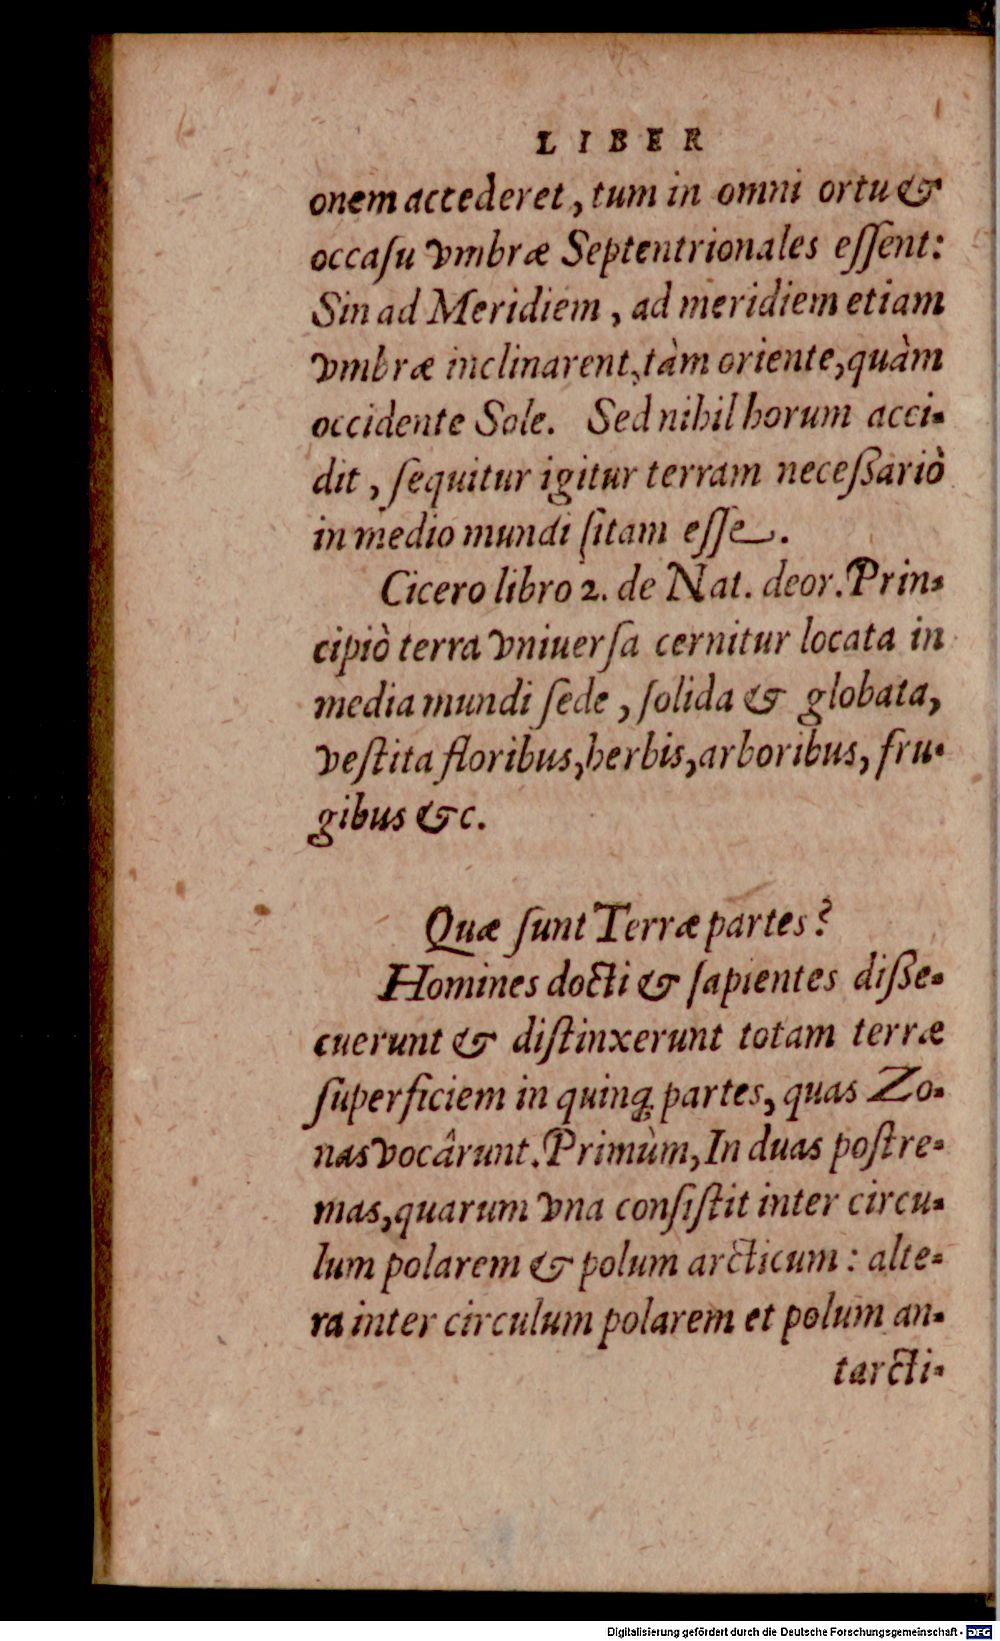 LIBER
onem accederet, tum in omni ortu &
occaſu vmbræ Septentrionales eſſent:
Sin ad Meridiem, ad meridiem etiam
vmbræ inclinarent, tàm oriente, quàm
occidente Sole. Sed nihil horum acci-
dit, ſequitur igitur terram neceßariò
in medio mundi ſitam eſſe.
Cicero libro 2. de Nat. deor. Prin-
cipiò terra vniuerſa cernitur locata in
media mundi ſede, ſolida & globata,
veſtita floribus, herbis, arboribus, fru-
gibus &c.
Quæ ſunt Terræ partes?
Homines docti & ſapientes diße-
cuerunt & diſtinxerunt totam terræ
ſuperficiem in quinq; partes, quas Zo-
nas vocârunt. Primùm, In duas poſtre-
mas, quarum vna conſiſtit inter circu-
lum polarem & polum arcticum: alte-
ra inter circulum polarem et polum an-
tarcti-
Digitalisierung gefördert durch die Deutsche Forschungsgemeinschaft - DFG